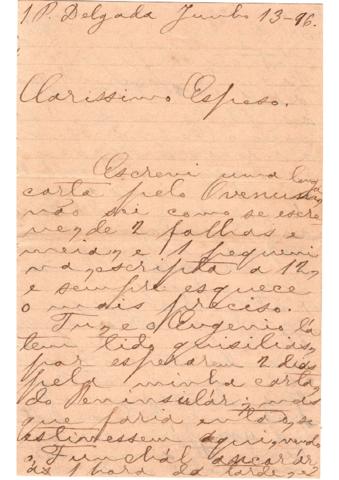 1 P. Delgada Junho 13-96.
Carissimo Esposo.
Escrevi uma longa
carta pelo
não sei como se escre
ve, de 2 folhas e
meia, e 1 pequeni
na, escripta a 12,
e sempre esquece
o mais preciso.
Tu, e o Eugenio lá
tem tido quisilias,
por esperarem 2 dias
pela minha carta,
do Peninsulár; mas
que faria eu
estivessem aqui, vindo
o Funchál ancorár,
ás 1 hora da tarde, e